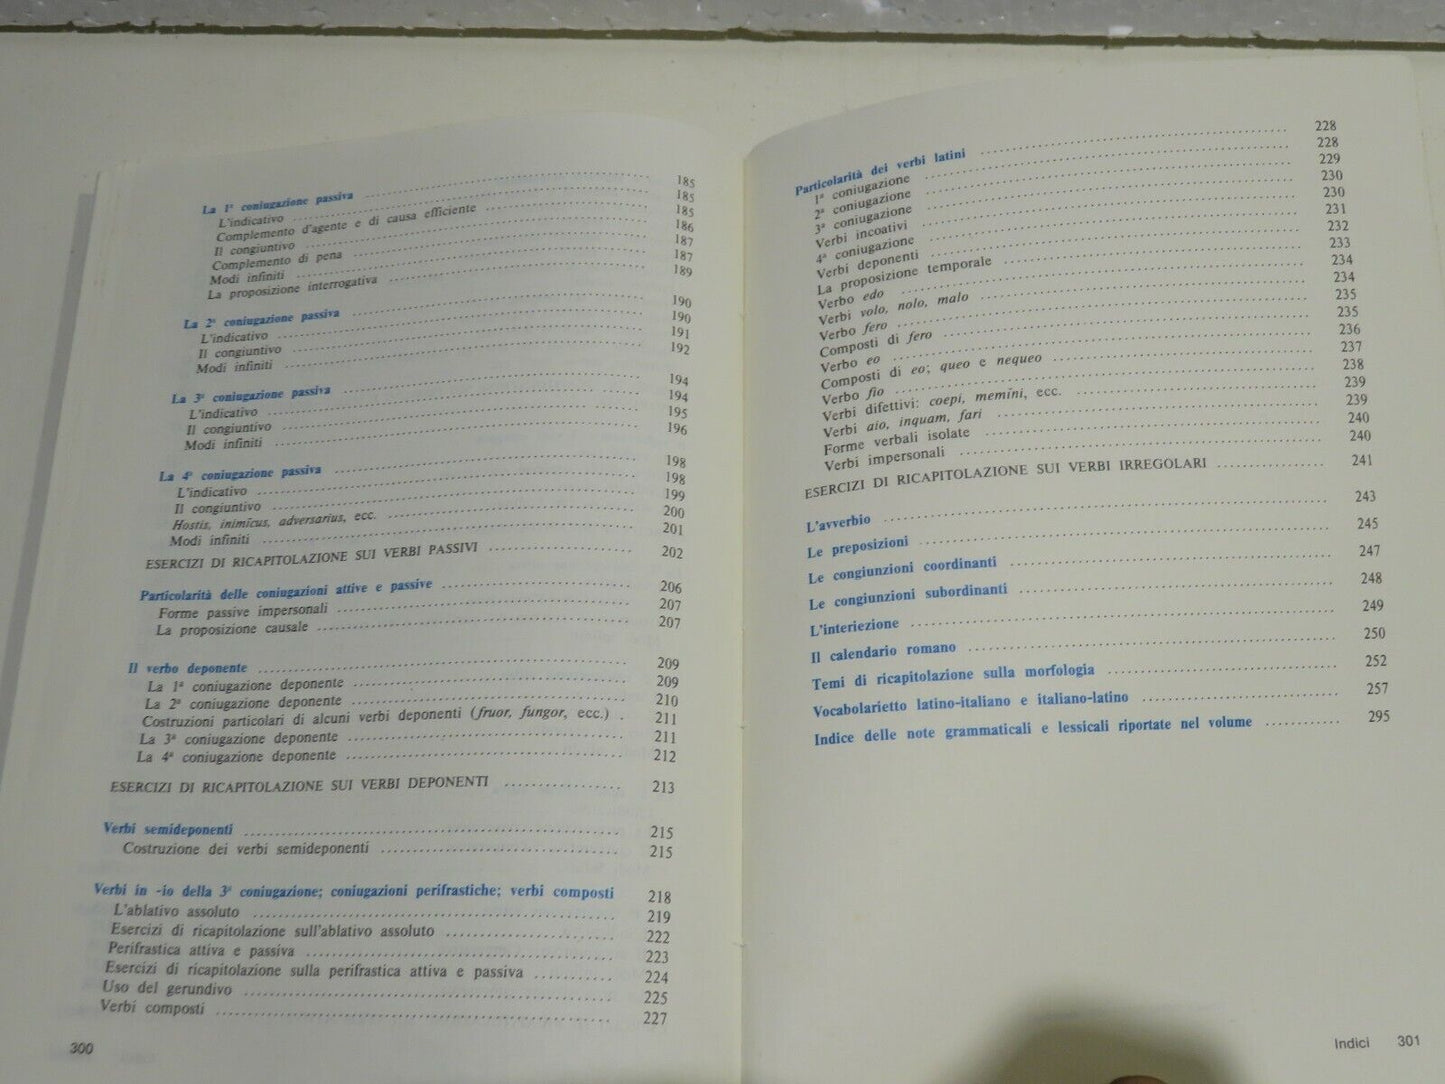 La 1ª coniugazione passiva 185
L'indicativo 185
Complemento d'agente e di causa efficiente 185
Il congiuntivo 186
Complemento di pena 187
Modi infiniti 187
La proposizione interrogativa 189
La 2ª coniugazione passiva 190
L'indicativo 190
Il congiuntivo 191
Modi infiniti 192
La 3ª coniugazione passiva 194
L'indicativo 194
Il congiuntivo 195
Modi infiniti 196
La 4ª coniugazione passiva 198
L'indicativo 198
Il congiuntivo 199
Hostis, inimicus, adversarius, ecc. 200
Modi infiniti 201
ESERCIZI DI RICAPITOLAZIONE SUI VERBI PASSIVI 202
Particolarità delle coniugazioni attive e passive 206
Forme passive impersonali 207
La proposizione causale 207
Il verbo deponente 209
La 1ª coniugazione deponente 209
La 2ª coniugazione deponente 210
Costruzioni particolari di alcuni verbi deponenti (fruor, fungor, ecc.) . 211
La 3ª coniugazione deponente 211
La 4ª coniugazione deponente 212
ESERCIZI DI RICAPITOLAZIONE SUI VERBI DEPONENTI 213
Verbi semideponenti 215
Costruzione dei verbi semideponenti 215
Verbi in -io della 3ª coniugazione; coniugazioni perifrastiche; verbi composti 218
L'ablativo assoluto 219
Esercizi di ricapitolazione sull'ablativo assoluto 222
Perifrastica attiva e passiva 223
Esercizi di ricapitolazione sulla perifrastica attiva e passiva 224
Uso del gerundivo 225
Verbi composti 227
300
Particolarità dei verbi latini 228
1ª coniugazione 228
2ª coniugazione 229
3ª coniugazione 230
Verbi incoativi 230
4ª coniugazione 231
Verbi deponenti 232
La proposizione temporale 233
Verbo edo 234
Verbi volo, nolo, malo 234
Verbo fero 235
Composti di fero 235
Verbo eo 236
Composti di eo; queo e nequeo 237
Verbo fio 238
Verbi difettivi: coepi, memini, ecc. 239
Verbi aio, inquam, fari 239
Forme verbali isolate 240
Verbi impersonali 240
ESERCIZI DI RICAPITOLAZIONE SUI VERBI IRREGOLARI 241
L'avverbio 243
Le preposizioni 245
Le congiunzioni coordinanti 247
Le congiunzioni subordinanti 248
L'interiezione 249
Il calendario romano 250
Temi di ricapitolazione sulla morfologia 252
Vocabolarietto latino-italiano e italiano-latino 257
Indice delle note grammaticali e lessicali riportate nel volume 295
Indici 301